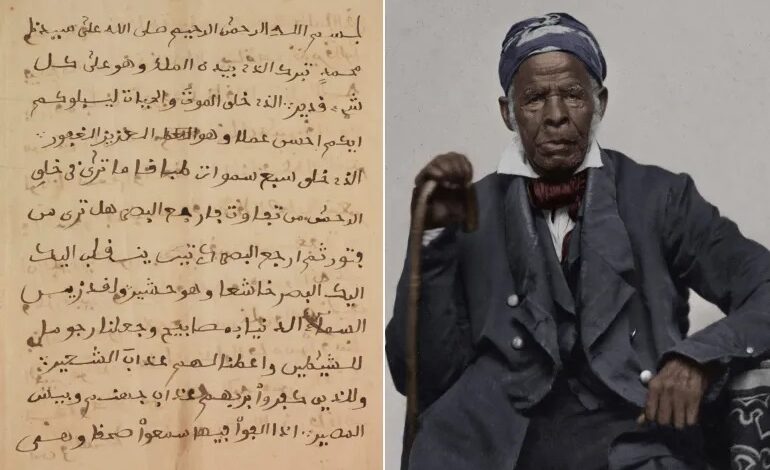 بسم الله الرحمن الرحيم صلى الله على سيدنا
محمد تبرك الذى بيده الملك وهو على كل
شىء قدير الذى خلق الموت والحيات ليبلوكم
ايكم احسن عملا وهو العزيز الغفور
الذى خلق سبع سموات طباقا ما ترى فى خلق
الرحمن من تفاوت فارجع البصر هل ترى من
فتور ثم ارجع البصر ينقلب اليك
اليك البصر خاشعا وهو حشير ولقد زين
السماء الدنيا بمصابيح وجعلنا رجوما
للشيطين واعطنا لهم عذاب الشعير
وللذين كفروا بربهم عذاب جهنم وبيس
المصير اذا القوا فيها سمعوا وهى